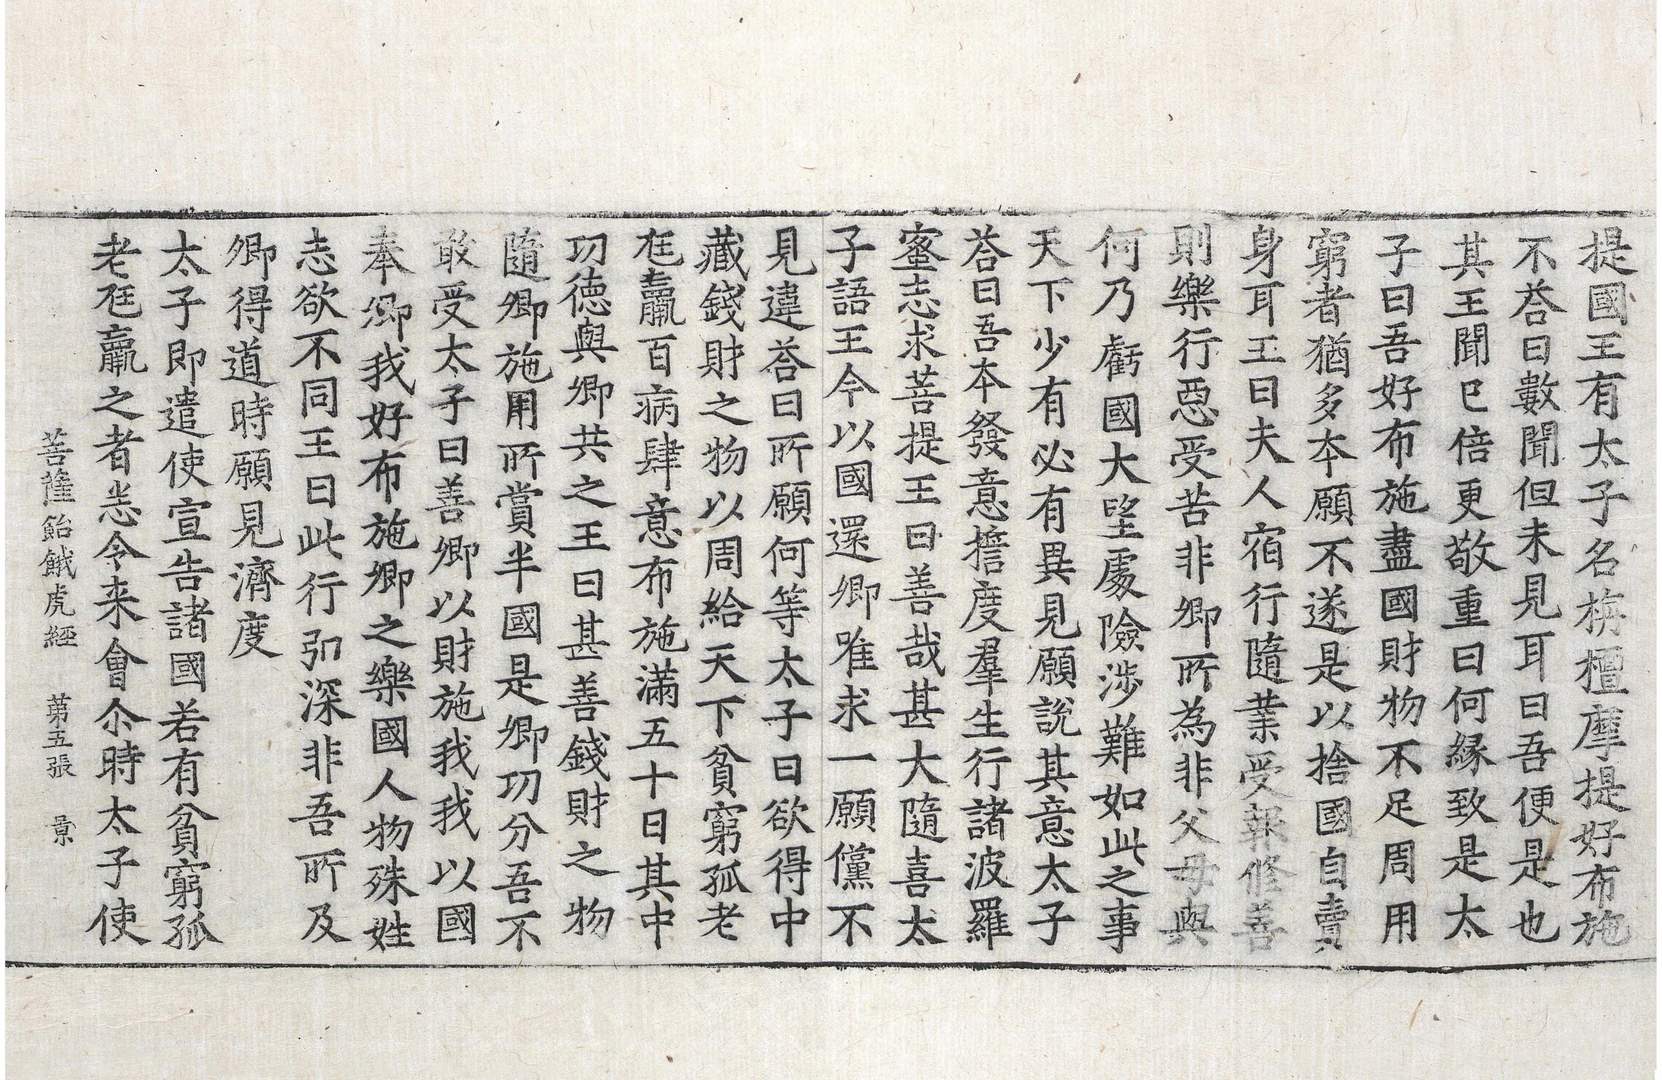 提國王有太子名栴檀摩提好布施
不荅曰數聞但未見耳曰吾便是也
其王聞已倍更敬重曰何緣致是太
子曰吾好布施盡國財物不足周用
窮者猶多本願不遂是以捨國自賣
身耳王曰夫人宿行隨業受報修善
則樂行惡受苦非卿所為非父母與
何乃虧國大望處險涉難如此之事
天下少有必有異見願說其意太子
荅曰吾本發意擔度羣生行諸波羅
蜜志求菩提王曰善哉甚大隨喜太
子語王今以國還卿唯求一願儻不
見違荅曰所願何等太子曰欲得中
藏錢財之物以周給天下貧窮孤老
尫羸百病肆意布施滿五十日其中
功德與卿共之王曰甚善錢財之物
隨卿施用所賞半國是卿功分吾不
敢受太子曰善卿以財施我我以國
奉卿我好布施卿之樂國人物殊姓
志欲不同王曰此行弘深非吾所及
卿得道時願見濟度
太子即遣使宣告諸國若有貧窮孤
老尫羸之者悉令来會尒時太子使
菩薩飴餓虎經　第五張　景